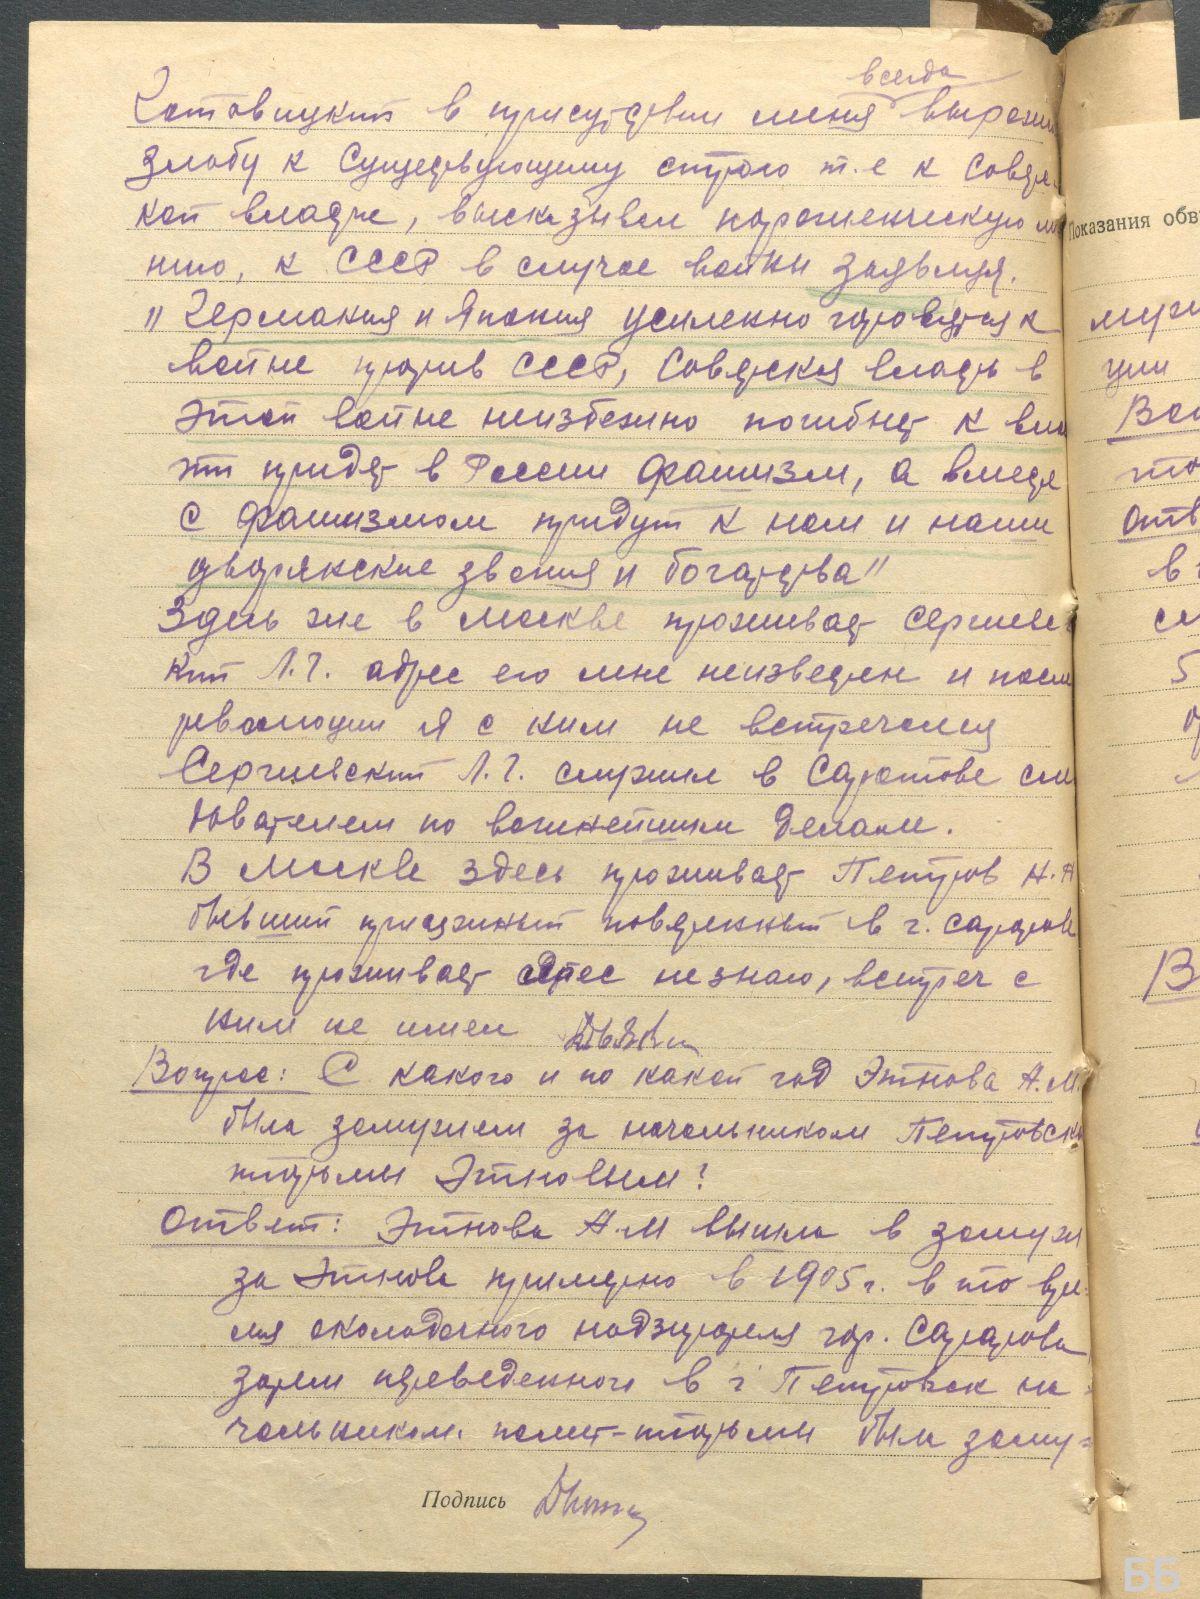 всегда
Котовицкий в присутствии меня выражал
злобу к существующему строю т.е к Совет-
кой власти, высказывал пораженческую
нию, к СССР в случае войны заявляя.
"Германия и Япония усиленно готовятся к
войне против СССР, Советская власть в
этой войне неизбежно погибнет к вла
сти придет в России фашизм, а вместе
с фашизмом придут к нам и наши
дворянские звания и богатства"
Здесь же в Москве проживает Сергиевс
кий Л.Г. адрес его мне неизвестен и после
революции я с ним не встречался
Сергиевский Л.Г. служил в Саратове сле
дователем по важнейшим делам.
В Москве здесь проживает Петров Н.А
бывший присяжный поверенный в г. Саратове
где проживает адрес не знаю, встреч с
ним не имел
Вопрос: С какого и по какой год Этнова А.М.
была замужем за начальником Петровской
тюрьмы Этновым?
Ответ: Этнова А.М вышла в замуж
за Этнова примерно в 1905г. в то вре-
мя околодочного надзирателя гор. Саратова
затем переведенного в г Петровск на-
чальником полит-тюрьмы была заму=
Подпись
Показания обв
муж
ции
Во
то
Отв
в
с
5
В
ББ